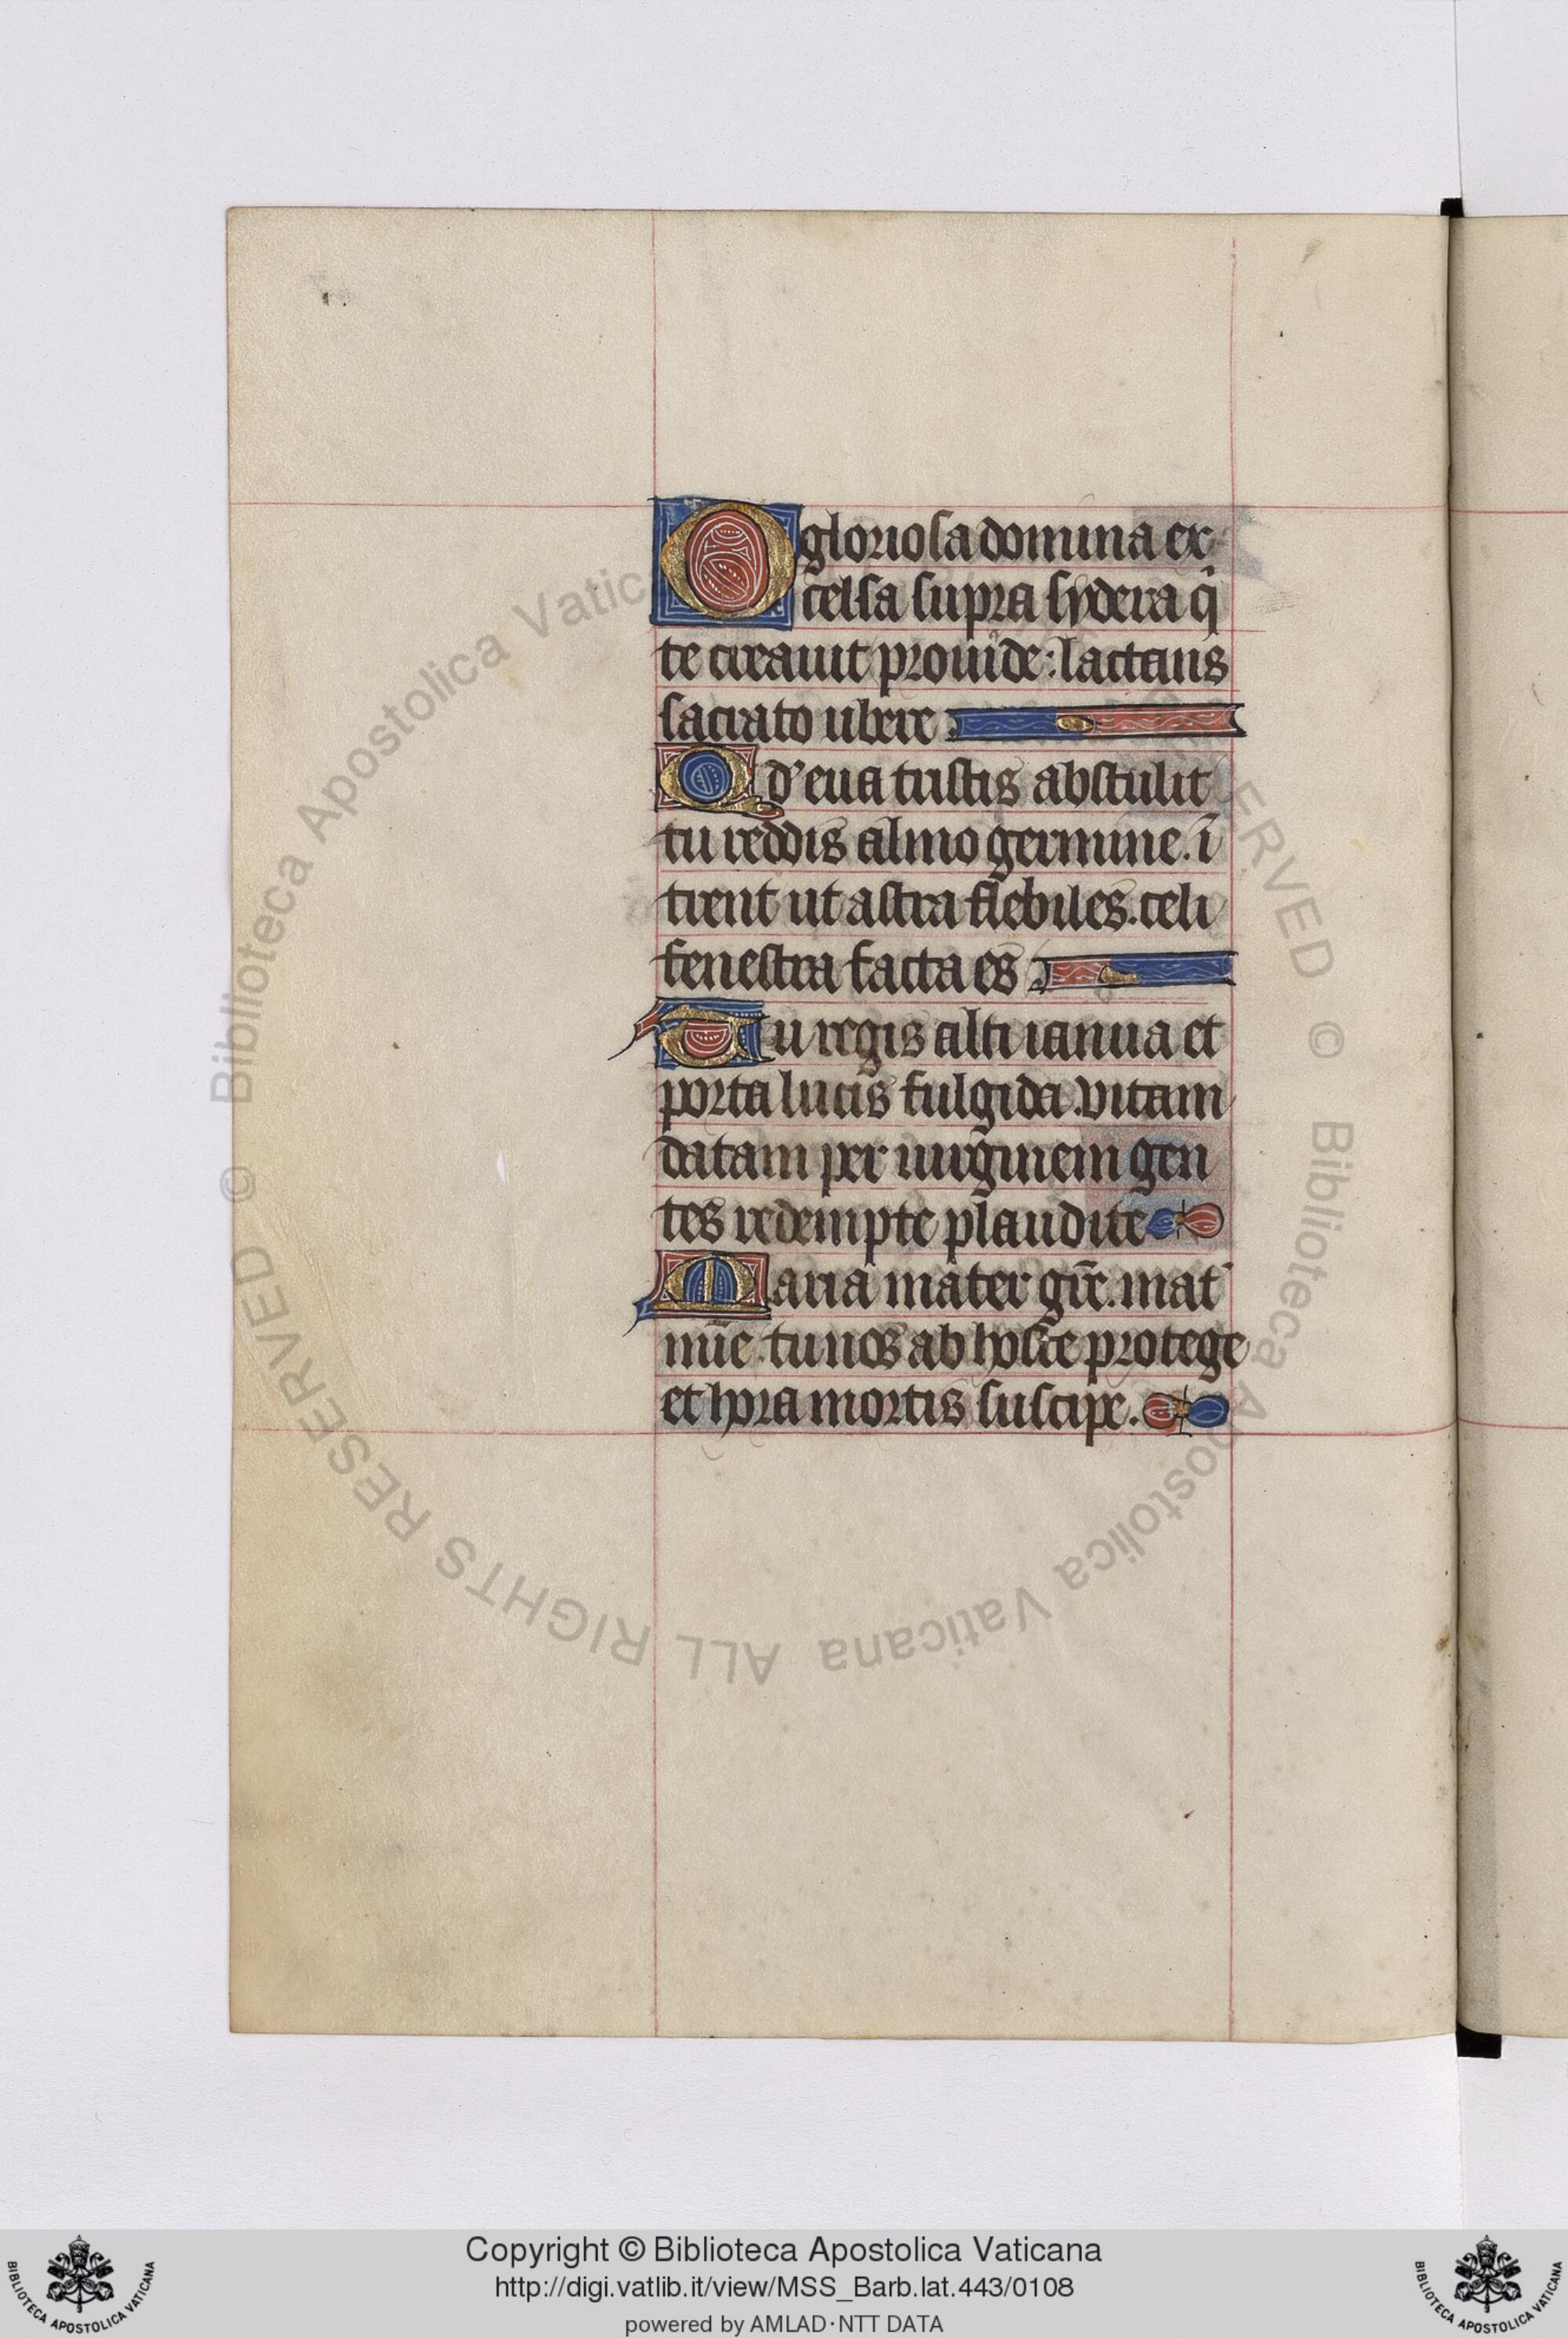 O gloriosa domina ex
celsa supra sydera qͥ
te creauit prouide: lactans
sacrato ubere.
Qd' eua tristis abstulit
tu reddis almo germine. ī
trent ut astra flebiles. celi
fenestra facta es.
Tu regis alti ianua et
porta lucis fulgida. vitam
datam per uirginem gen
tes redempte plaudite
Maria mater gr̄e. mat͛
mīe. tu nos ab hoste protege
et hora mortis suscipe.
© Biblioteca Apostolica Vaticana ALL RIGHTS RESERVED © Biblioteca Apostolica Vatic
ERVED
Copyright © Biblioteca Apostolica Vaticana
http://digi.vatlib.it/view/MSS_Barb.lat.443/0108
powered by AMLAD·NTT DATA
BIBLIOTECA APOSTOLICA VATICANA
BIBLIOTECA APOSTOLICA VATICANA